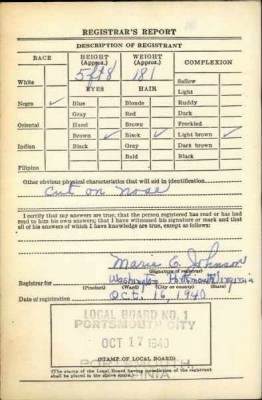 REGISTRAR'S REPORT
DESCRIPTION OF REGISTRANT
RACE HEIGHT (Approx.) WEIGHT (Approx.) COMPLEXION
5ft 8 181
EYES HAIR
White Sallow
Light
Negro ✓ Blue Blonde Ruddy
Gray Red Dark
Oriental Hazel Brown Freckled
Brown ✓ Black ✓ Light brown ✓
Indian Black Gray Dark brown
Bald Black
Filipino
Other obvious physical characteristics that will aid in identification
Cut on nose
I certify that my answers are true; that the person registered has read or has had
read to him his own answers; that I have witnessed his signature or mark and that
all of his answers of which I have knowledge are true, except as follows:
Marie E. Johnson
(Signature of registrar)
Registrar for Washington Portsmouth Virginia
(Precinct) (Ward) (City or county) (State)
Date of registration Oct. 16, 1940
LOCAL BOARD NO. 1
PORTSMOUTH CITY
OCT 17 1940
PORTSMOUTH,
VIRGINIA
(STAMP OF LOCAL BOARD)
(The stamp of the Local Board having jurisdiction of the registrant
shall be placed in the above space.)